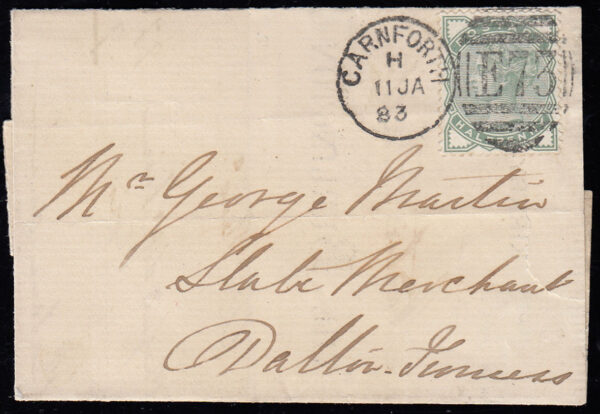 CARNFORTH
H
11 JA
83
E73
HALFPENNY
Mr George Martin
Slate Merchant
Dalton-Furness